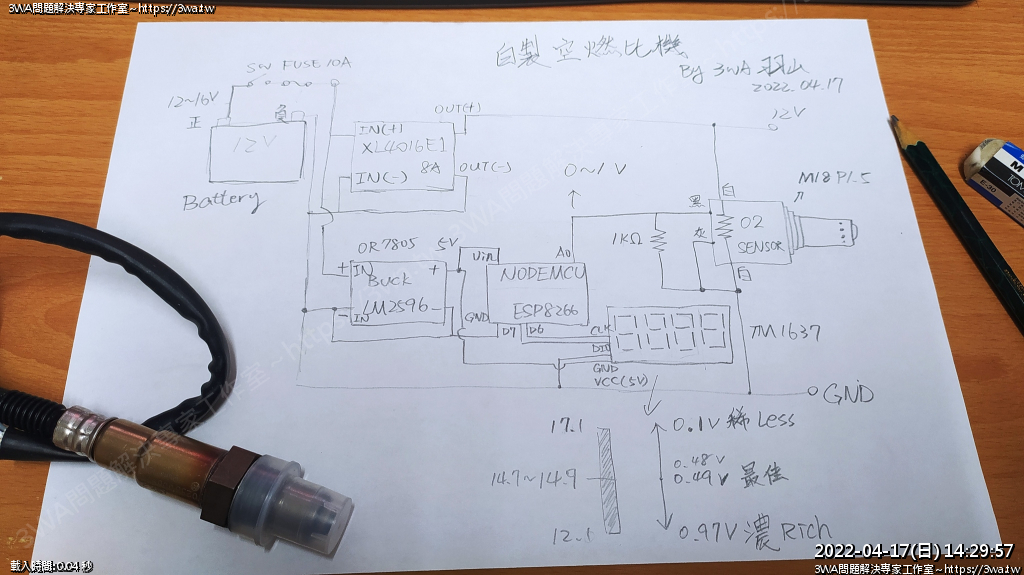 3WA問題解決專家工作室~https://3wa.tw
自製空燃比機
By 3WA 羽山
2022.04.17
SW FUSE 10A
12~16V
正
負
12V
Battery
OUT(+)
IN(+)
XL4016E1
8A
IN(-)
OUT(-)
12V
0~1V
M18 P1.5
白
黑
灰
O2
SENSOR
白
1KΩ
OR 7805
5V
+ IN
Buck
+
LM2596
- IN
-
Vin
A0
NODEMCU
ESP8266
GND
D7
D6
CLK
DIO
GND
VCC(5V)
TM1637
GND
17.1
0.1V 稀 Less
14.7~14.9
0.48V
0.49V 最佳
0.97V 濃 Rich
MONO
E-30
載入時間:0.04 秒
2022-04-17(日) 14:29:57
3WA問題解決專家工作室~https://3wa.tw